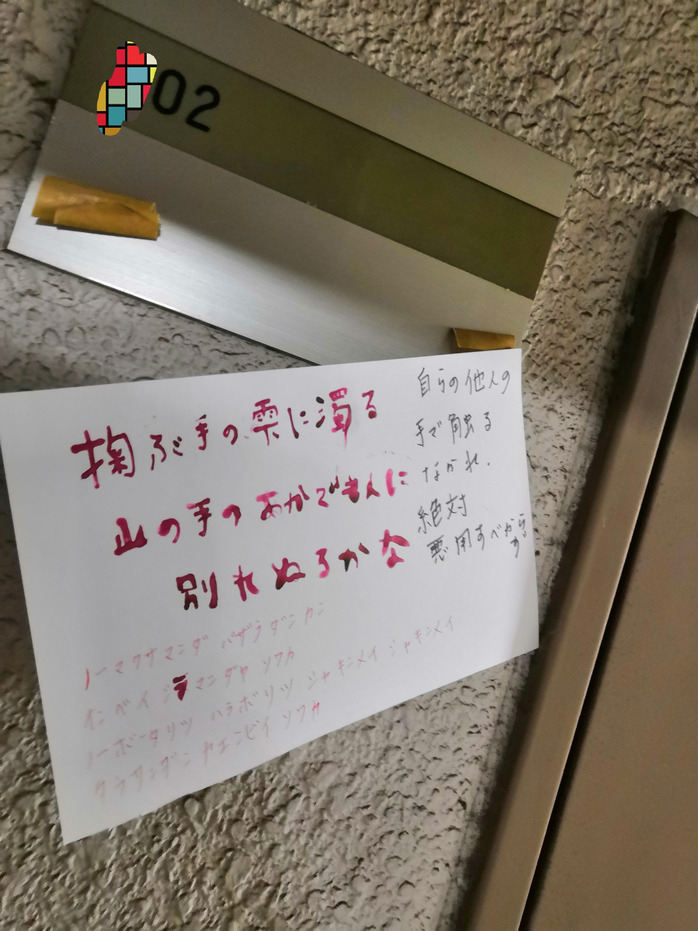 02
掬ぶ手の雫に濁る
山の手のあかでもんに
別れぬるかな
自らの他人の
手で触る
なかれ.
絶対
悪用すべからず
ノーマクサマンダ バザラダンカン
インベイ シラマンダヤ ソワカ
ノーボータリツ ハラボリツ シャキンメイ シャキンメイ
タラサンダン ヤエンビイ ソワカ